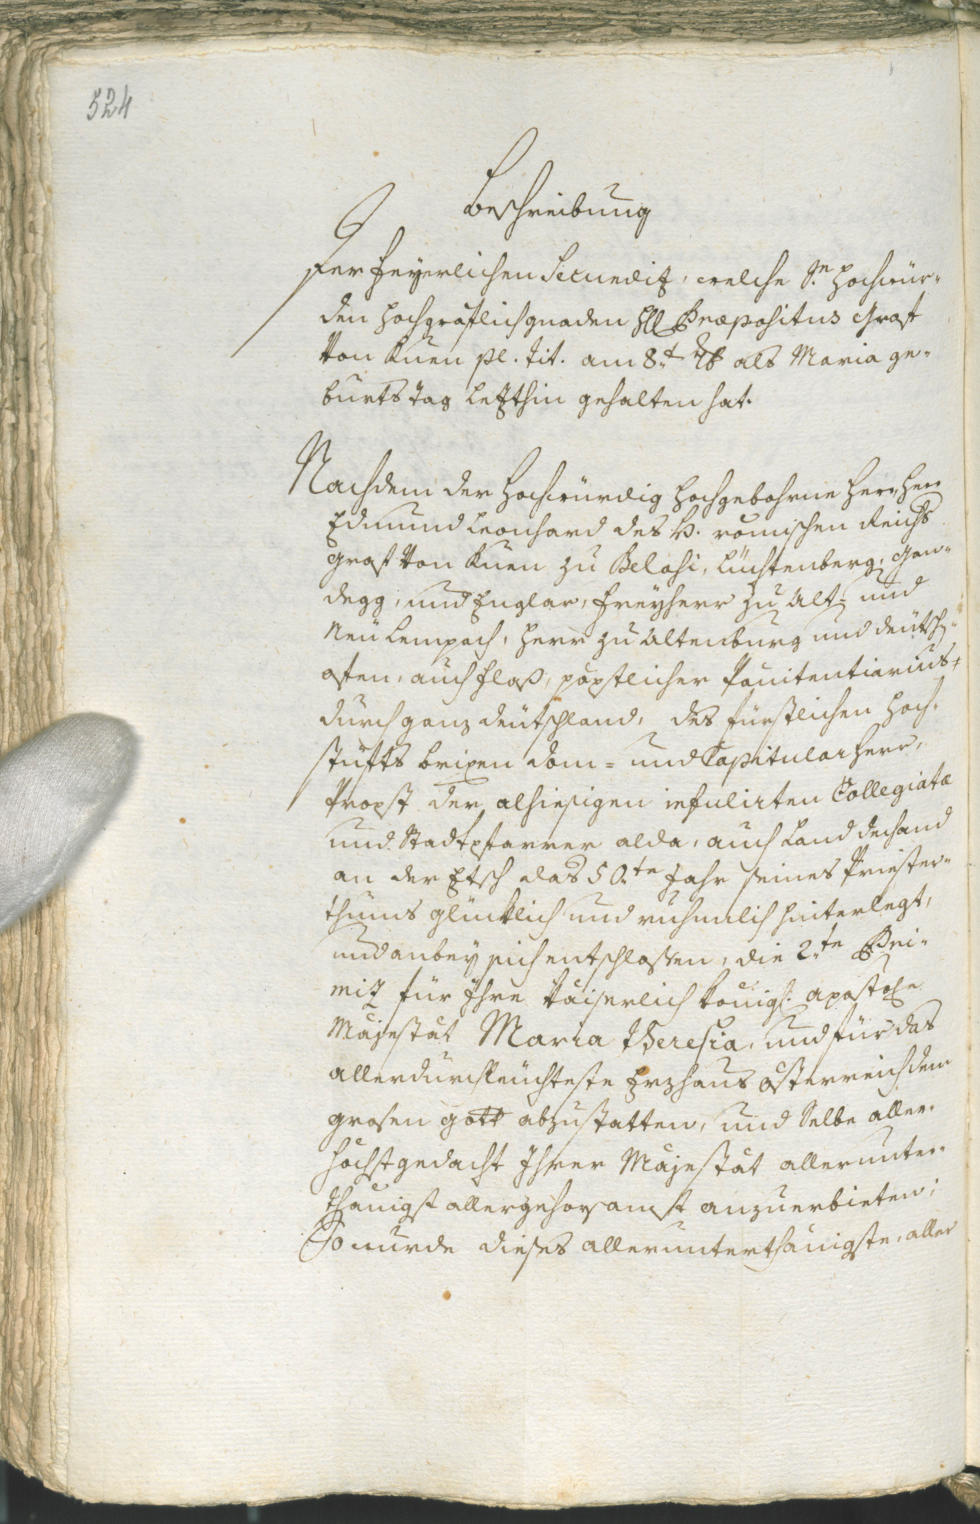 524
Beschreibung
Der Feyerlichen Secundiz, welche Se. Hochwür-
den Hochgräflich gnaden HH Præpositus Graf
Von Kuen pl. tit. am 8t 7b als Maria ge-
burts Tag letzthin gehalten hat.
Nachdem der Hochwürdig Hochgebohrne Herr, Herr
Edmund Leonhard des H. römischen Reichs
Graf Von Kuen zu Belasi, Liechtenberg, Gan-
degg, und Englar, Freyherr zu Alt- und
Neü Lempach, Herr zu Altenburg und deütsch-
ofen, auch Flaß, päpstlicher Pœnitentiarius
durch ganz deütschland, des fürstlichen Hoch-
stüfts brixen dom- und Capitularherr,
Propst der alhiesigen infulirten Collegiatæ
und Stadtpfarrer alda, auch Land dechand
an der Etsch das 50te Jahr seines Priester-
thums glücklich und ruhmlich hinterlegt,
und anbey sich entschlossen, die 2te Pri-
miz für Ihre kaiserlich königl. apostole
Majestät Maria Theresia, und für das
allerdurchleüchteste Erzhaus österreich dem
grosen gott abzustatten, und Selbe aller-
höchstgedacht Ihrer Majestät allerunter-
thänigst allergehorsamst anzuerbieten;
So wurde dieses allerunterthänigste, aller